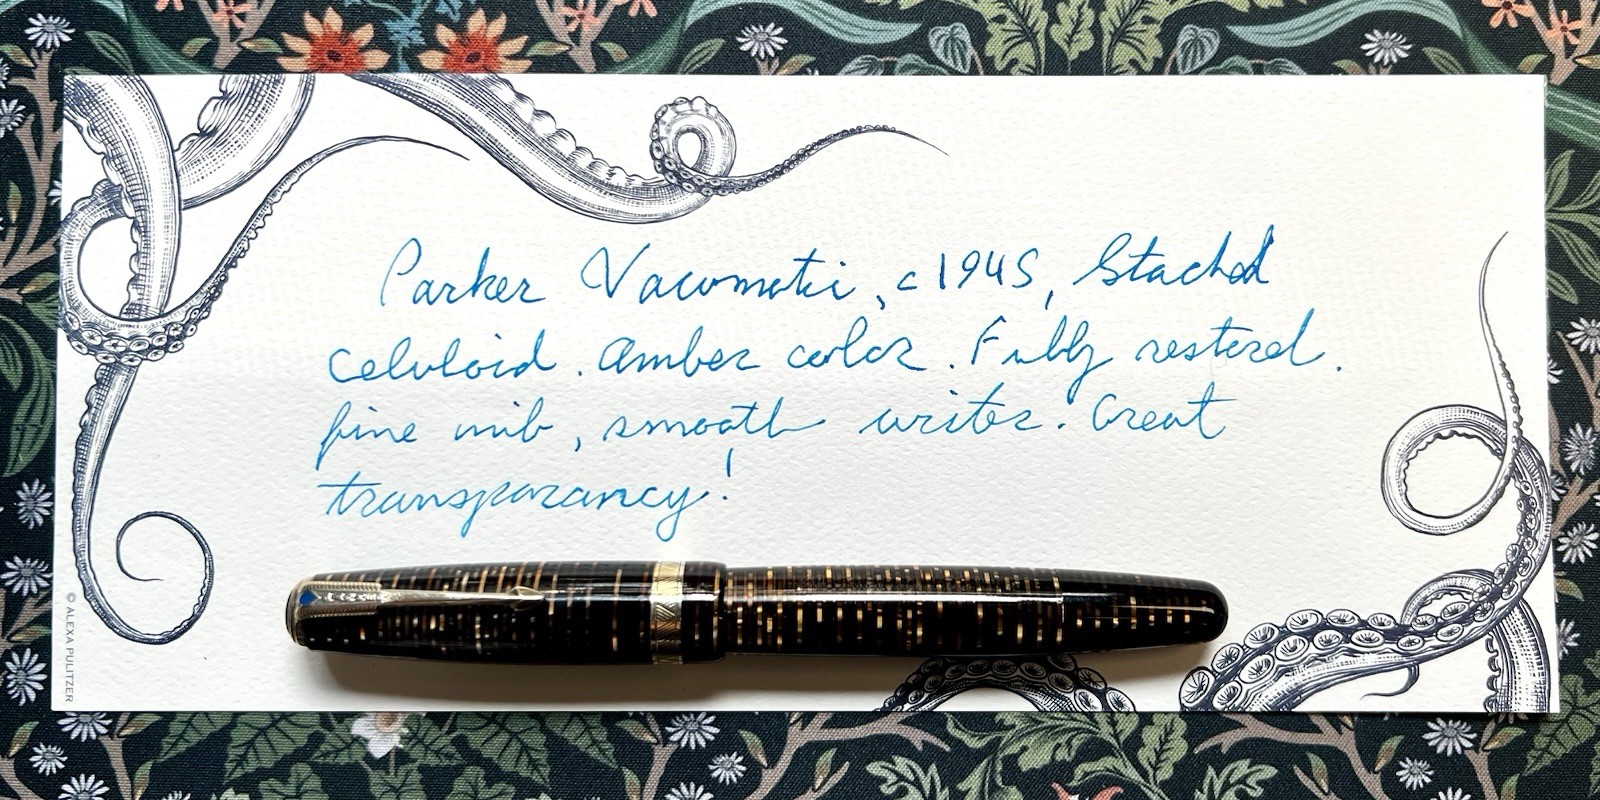 Parker Vacumatic, c1945, Stacked
Celuloid. Amber color. Fully restored.
fine nib, smooth writer. Great
transparancy!
© ALEXA PULITZER